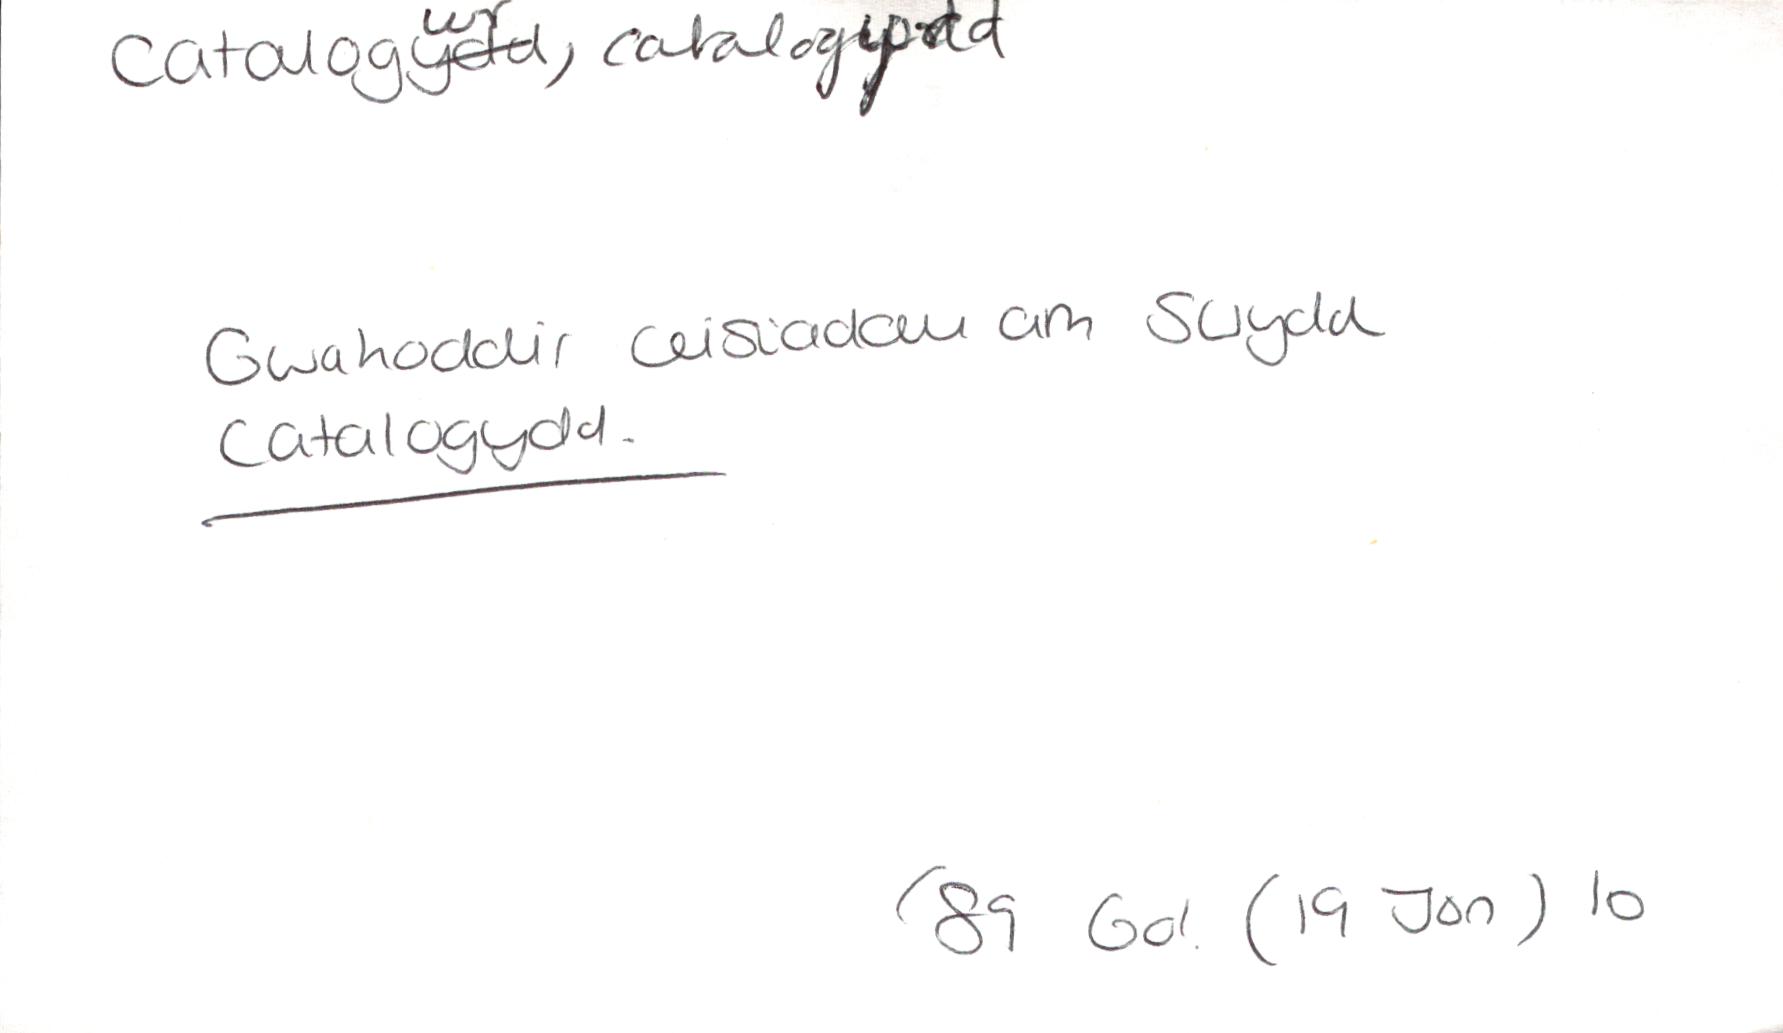 Catalogwr, catalogydd
Gwahoddir ceisiadau am Swydd
Catalogydd.
'89 Gol. (19 Jan) 10